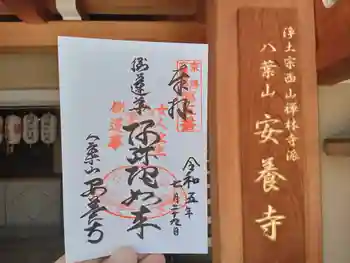 浄土宗西山禅林寺派
八葉山安養寺
奉拝
倒蓮華
弥陀如来
令和五年
七月二十九日
八葉山
安養寺
倒蓮華